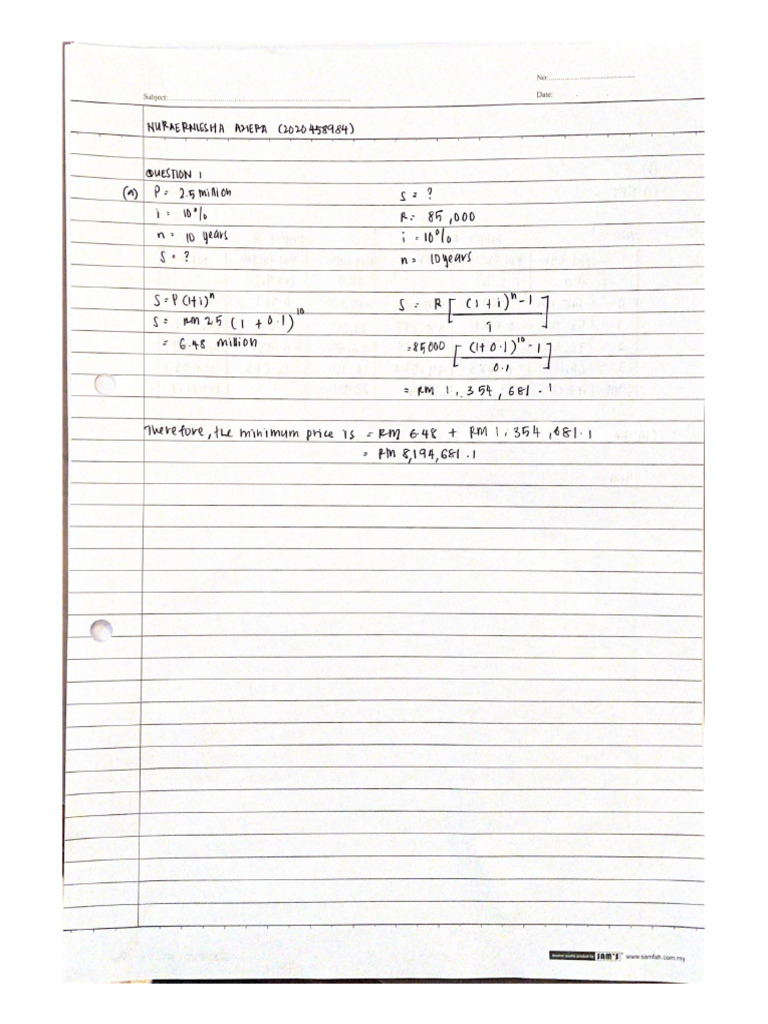 No:
Subject:
Date:
NURAERNIESHA AZIERA (2020458984)
QUESTION 1
(a) P = 2.5 million
i = 10%
n = 10 years
S = ?
S = ?
R = 85,000
i = 10%
n = 10 years
S = P (1+i)^n
S = RM 2.5 (1 + 0.1)^10
= 6.48 million
S = R [ (1 + i)^n - 1 / i ]
= 85000 [ (1+0.1)^10 - 1 / 0.1 ]
= RM 1, 354, 681 . 1
Therefore, the minimum price is = RM 6.48 + RM 1, 354, 681.1
= RM 8,194,681 .1
SAM'S www.samfah.com.my